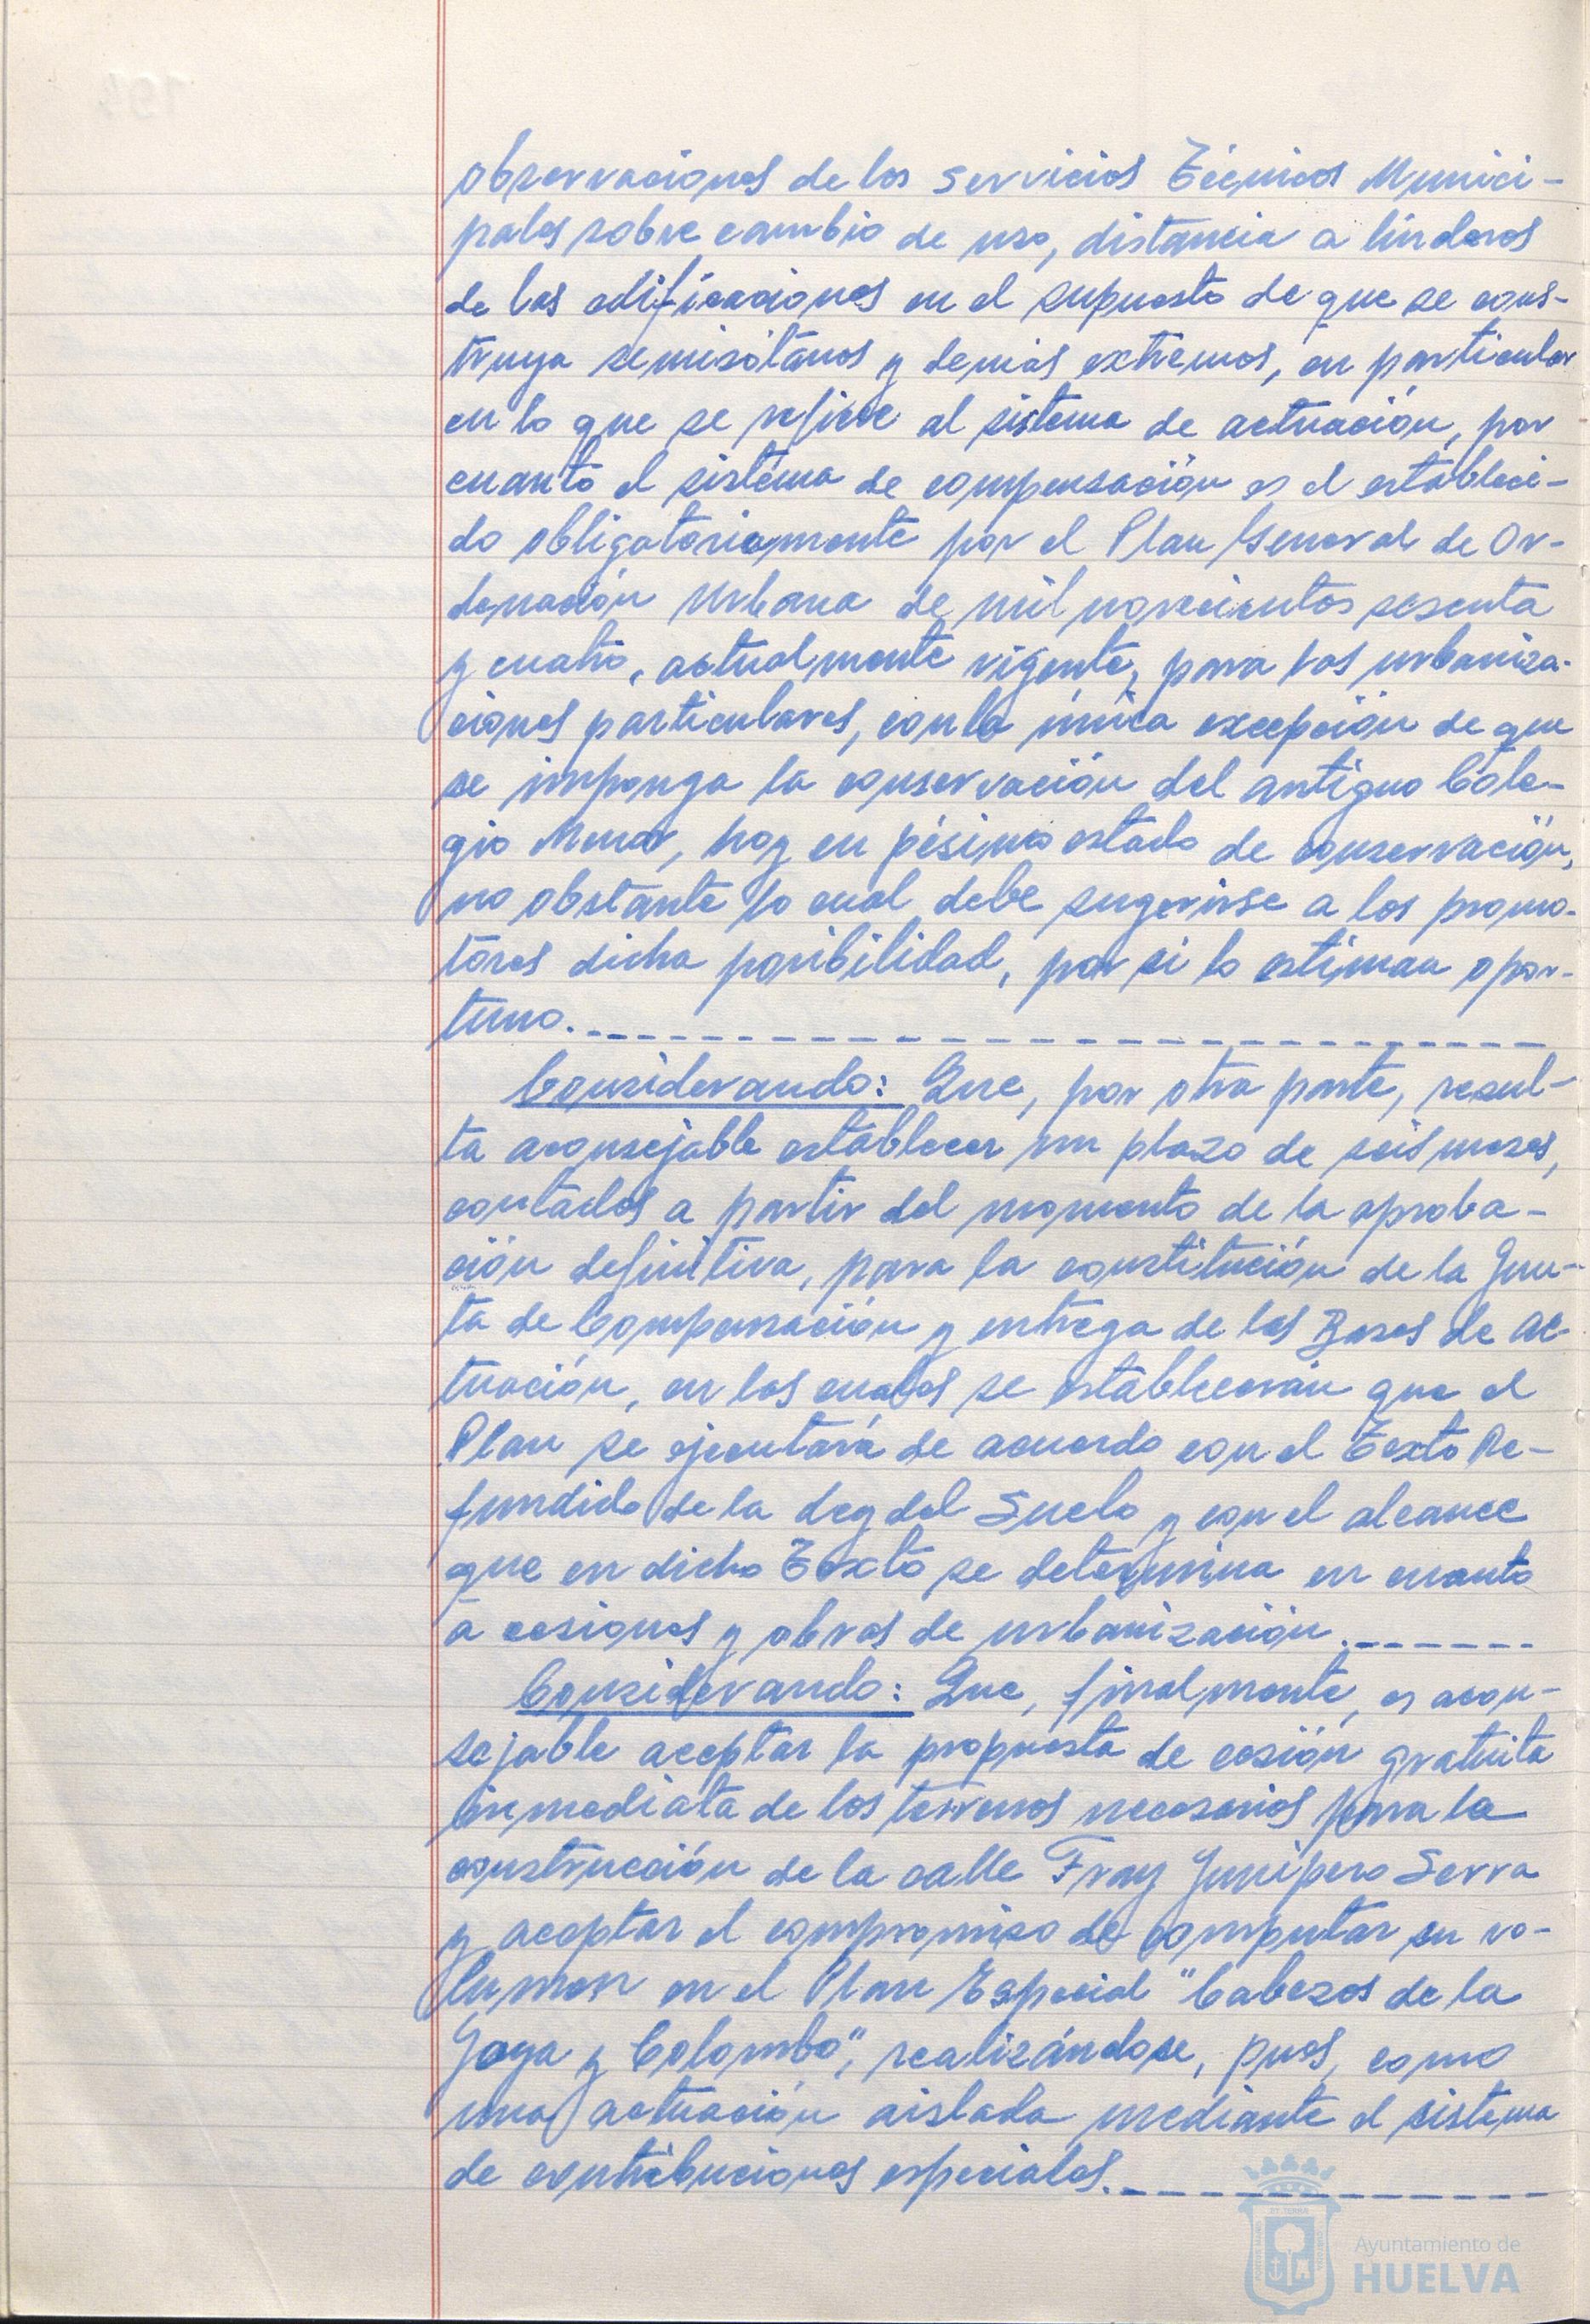 observaciones de los servicios Técnicos Munici-
pales sobre cambio de uso, distancia a linderos
de las edificaciones en el supuesto de que se cons-
truya semisótanos y demás extremos, en particular
en lo que se refiere al sistema de actuación, por
cuanto el sistema de compensación es el estableci-
do obligatoriamente por el Plan General de Or-
denación Urbana de mil novecientos sesenta
y cuatro, actualmente vigente, para las urbaniza-
ciones particulares, con la única excepción de que
se imponga la conservación del antiguo Cole-
gio Menor, hoy en pésimo estado de conservación,
no obstante lo cual debe sugerirse a los promo-
tores dicha posibilidad, por si lo estiman opor-
tuno.
Considerando: Que, por otra parte, resul-
ta aconsejable establecer un plazo de seis meses,
contados a partir del momento de la aproba-
ción definitiva, para la constitución de la Jun-
ta de Compensación y entrega de las Bases de Ac-
tuación, en las cuales se establecerán que el
Plan se ejecutará de acuerdo con el Texto Re-
fundido de la Ley del Suelo y con el alcance
que en dicho Texto se determina en cuanto
a cesiones y obras de urbanización.
Considerando: Que, finalmente, es acon-
sejable aceptar la propuesta de cesión gratuita
inmediata de los terrenos necesarios para la
construcción de la calle Fray Junípero Serra
y aceptar el compromiso de computar su vo-
lumen en el Plan Especial "Cabezos de la
Joya y Colombo", realizándose, pues, como
una actuación aislada mediante el sistema
de contribuciones especiales.
Ayuntamiento de
HUELVA